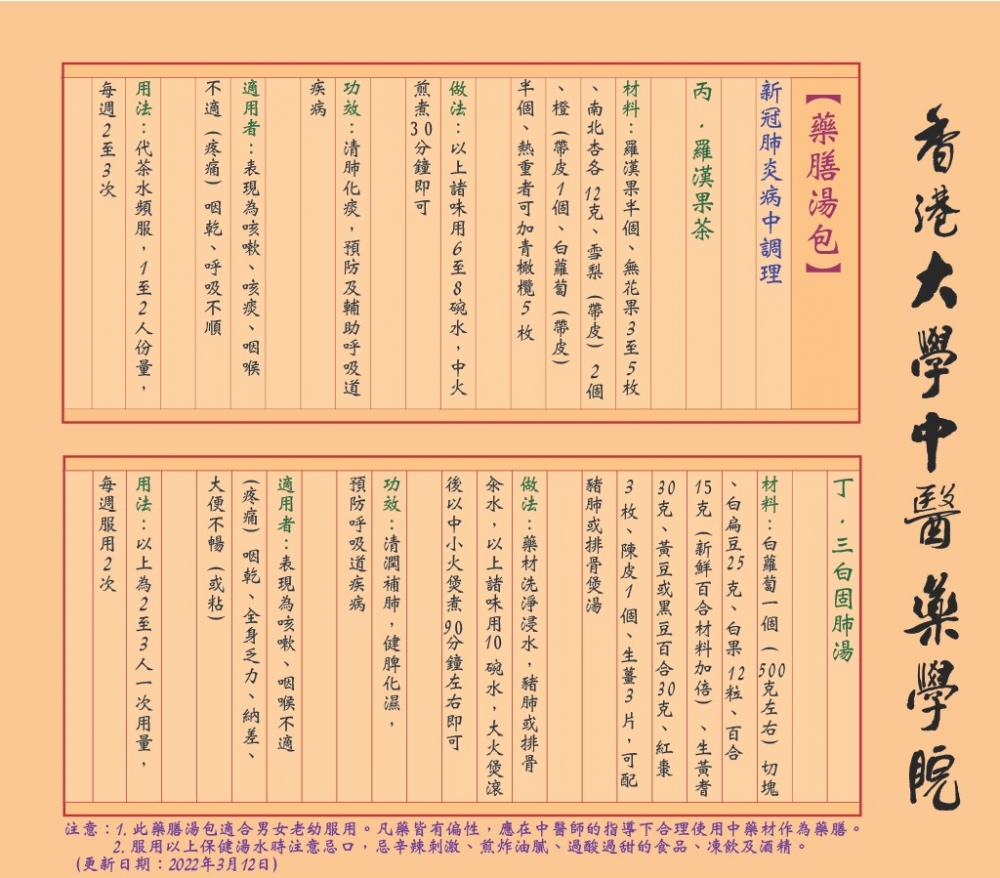 香港大學中醫藥學院
【藥膳湯包】
新冠肺炎病中調理
丙．羅漢果茶
材料：羅漢果半個、無花果3至5枚
、南北杏各12克、雪梨（帶皮）2個
、橙（帶皮1個、白蘿蔔（帶皮）
半個、熱重者可加青橄欖5枚
做法：以上諸味用6至8碗水，中火
煎煮30分鐘即可
功效：清肺化痰，預防及輔助呼吸道
疾病
適用者：表現為咳嗽、咳痰、咽喉
不適（疼痛）咽乾、呼吸不順
用法：代茶水頻服，1至2人份量，
每週2至3次
丁．三白固肺湯
材料：白蘿蔔一個（500克左右）切塊
、白扁豆25克、白果12粒、百合
15克（新鮮百合材料加倍）、生黃耆
30克、黃豆或黑豆百合30克、紅棗
3枚、陳皮1個、生薑3片，可配
豬肺或排骨煲湯
做法：藥材洗淨浸水，豬肺或排骨
汆水，以上諸味用10碗水，大火煲滾
後以中小火煲煮90分鐘左右即可
功效：清潤補肺，健脾化濕，
預防呼吸道疾病
適用者：表現為咳嗽、咽喉不適
（疼痛）咽乾、全身乏力、納差、
大便不暢（或粘）
用法：以上為2至3人一次用量，
每週服用2次
注意：1. 此藥膳湯包適合男女老幼服用。凡藥皆有偏性，應在中醫師的指導下合理使用中藥材作為藥膳。
2. 服用以上保健湯水時注意忌口，忌辛辣刺激、煎炸油膩、過酸過甜的食品、凍飲及酒精。
（更新日期：2022年3月12日）